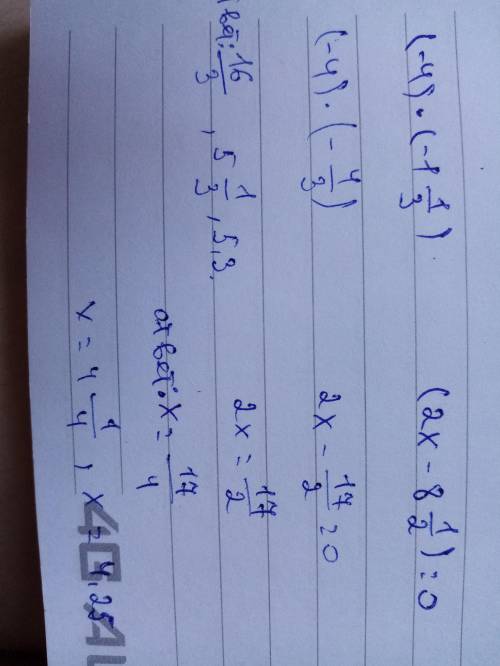 (-4) · (-1 1/3)
(-4) · (- 4/3)
твет: 16/3, 5 1/3, 5,3.
(2x - 8 1/2) = 0
2x - 17/2 = 0
2x = 17/2
ответ: x = 17/4
x = 4 1/4, x = 4,25